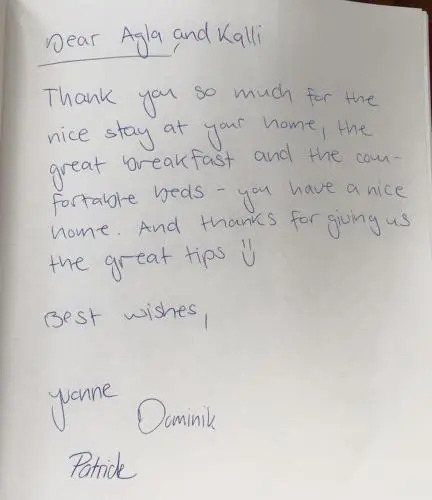 Dear Agla and Kalli
Thank you so much for the
nice stay at your home, the
great breakfast and the com-
fortable beds - you have a nice
home. And thanks for giving us
the great tips :)
Best wishes,
Yvonne
Dominik
Patrick